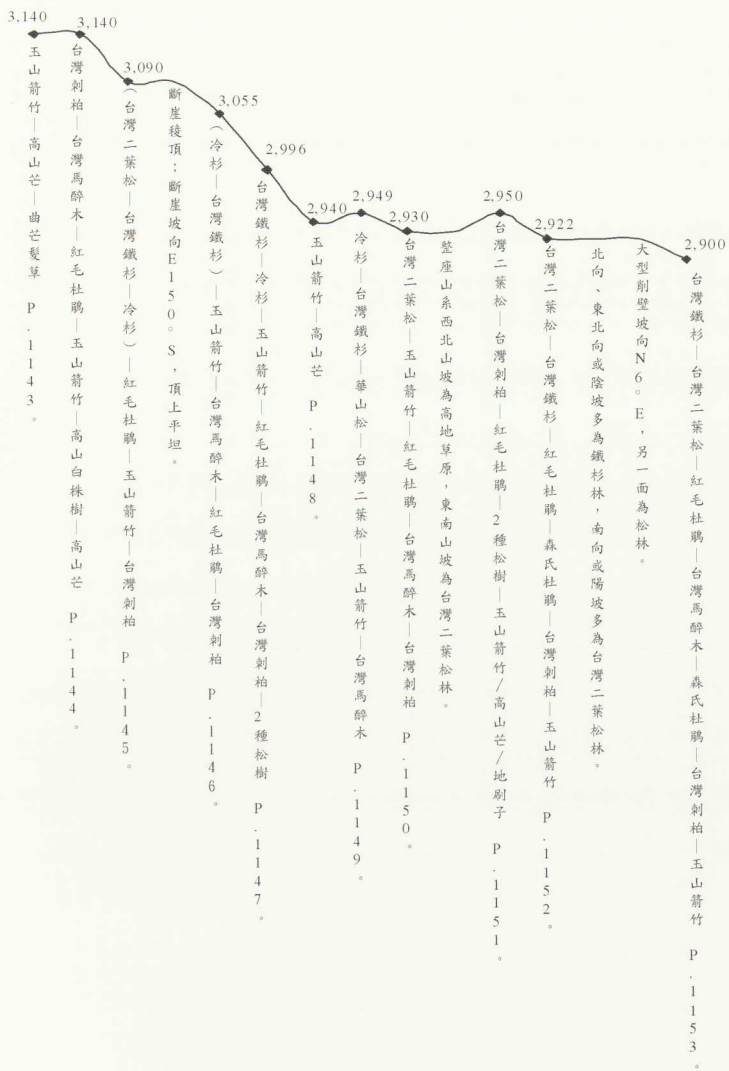 3,140
玉山箭竹—高山芒—曲芒髮草 P.1143。
3,140
台灣刺柏—台灣馬醉木—紅毛杜鵑—玉山箭竹—高山白株樹—高山芒 P.1144。
3,090
(台灣二葉松—台灣鐵杉—冷杉)—紅毛杜鵑—玉山箭竹—台灣刺柏 P.1145。
斷崖稜頂;斷崖坡向E150。S,頂上平坦。
3,055
(冷杉—台灣鐵杉)—玉山箭竹—台灣馬醉木—紅毛杜鵑—台灣刺柏 P.1146。
2,996
台灣鐵杉—冷杉—玉山箭竹—紅毛杜鵑—台灣馬醉木—台灣刺柏—2種松樹 P.1147。
2,940
玉山箭竹—高山芒 P.1148。
2,949
冷杉—台灣鐵杉—華山松—台灣二葉松—玉山箭竹—台灣馬醉木 P.1149。
2,930
台灣二葉松—玉山箭竹—紅毛杜鵑—台灣馬醉木—台灣刺柏 P.1150。
整座山系西北山坡為高地草原,東南山坡為台灣二葉松林。
2,950
台灣二葉松—台灣刺柏—紅毛杜鵑—2種松樹—玉山箭竹/高山芒/地刷子 P.1151。
2,922
台灣二葉松—台灣鐵杉—紅毛杜鵑—森氏杜鵑—台灣刺柏—玉山箭竹 P.1152。
北向、東北向或陰坡多為鐵杉林,南向或陽坡多為台灣二葉松林。
大型削壁坡向N6。E,另一面為松林。
2,900
台灣鐵杉—台灣二葉松—紅毛杜鵑—台灣馬醉木—森氏杜鵑—台灣刺柏—玉山箭竹 P.1153。